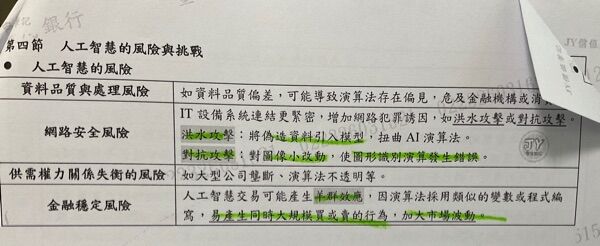 銀行
第四節 人工智慧的風險與挑戰
● 人工智慧的風險
資料品質與處理風險
如資料品質偏差，可能導致演算法存在偏見，危及金融機構或消
網路安全風險
IT 設備系統連結更緊密，增加網路犯罪誘因，如洪水攻擊或對抗攻擊。
洪水攻擊：將偽造資料引入模型，扭曲 AI 演算法。
對抗攻擊：對圖像小改動，使圖形識別演算發生錯誤。
供需權力關係失衡的風險
如大型公司壟斷、演算法不透明等。
金融穩定風險
人工智慧交易可能產生羊群效應，因演算法採用類似的變數或程式編
寫，易產生同時大規模買或賣的行為，加大市場波動。
JY